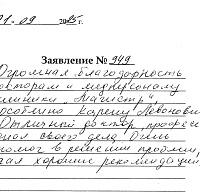 21-09 2015г.
Заявление № 949
Огромная благодарность
докторам и медперсоналу
клиники "Магистр",
особенно Карену Левоновичу
Отличный доктор, професс
онал своего дела Очень
помог в решении проблем,
дал хорошие рекомендации